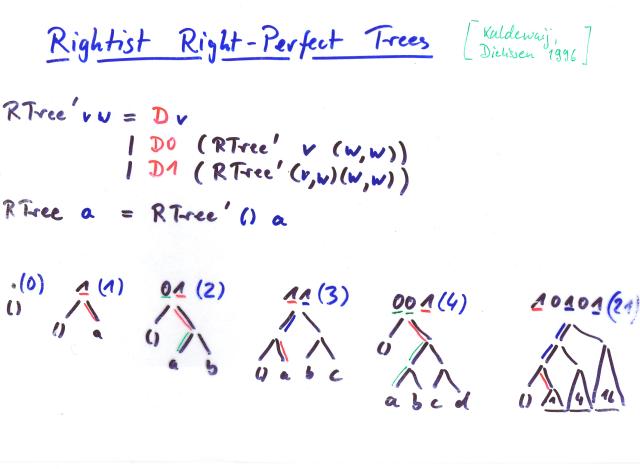 Rightist Right-Perfect Trees
[Kaldewaij, Dielissen 1996]
RTree' v w = D v
| D0 (RTree' v (w,w))
| D1 (RTree' (v,w)(w,w))
RTree a = RTree' () a
.(0) 1 (1) 01 (2) 11 (3) 001 (4) 10101 (21)
()
() a
() a b
() a b c
() a b c d
() 1 4 16